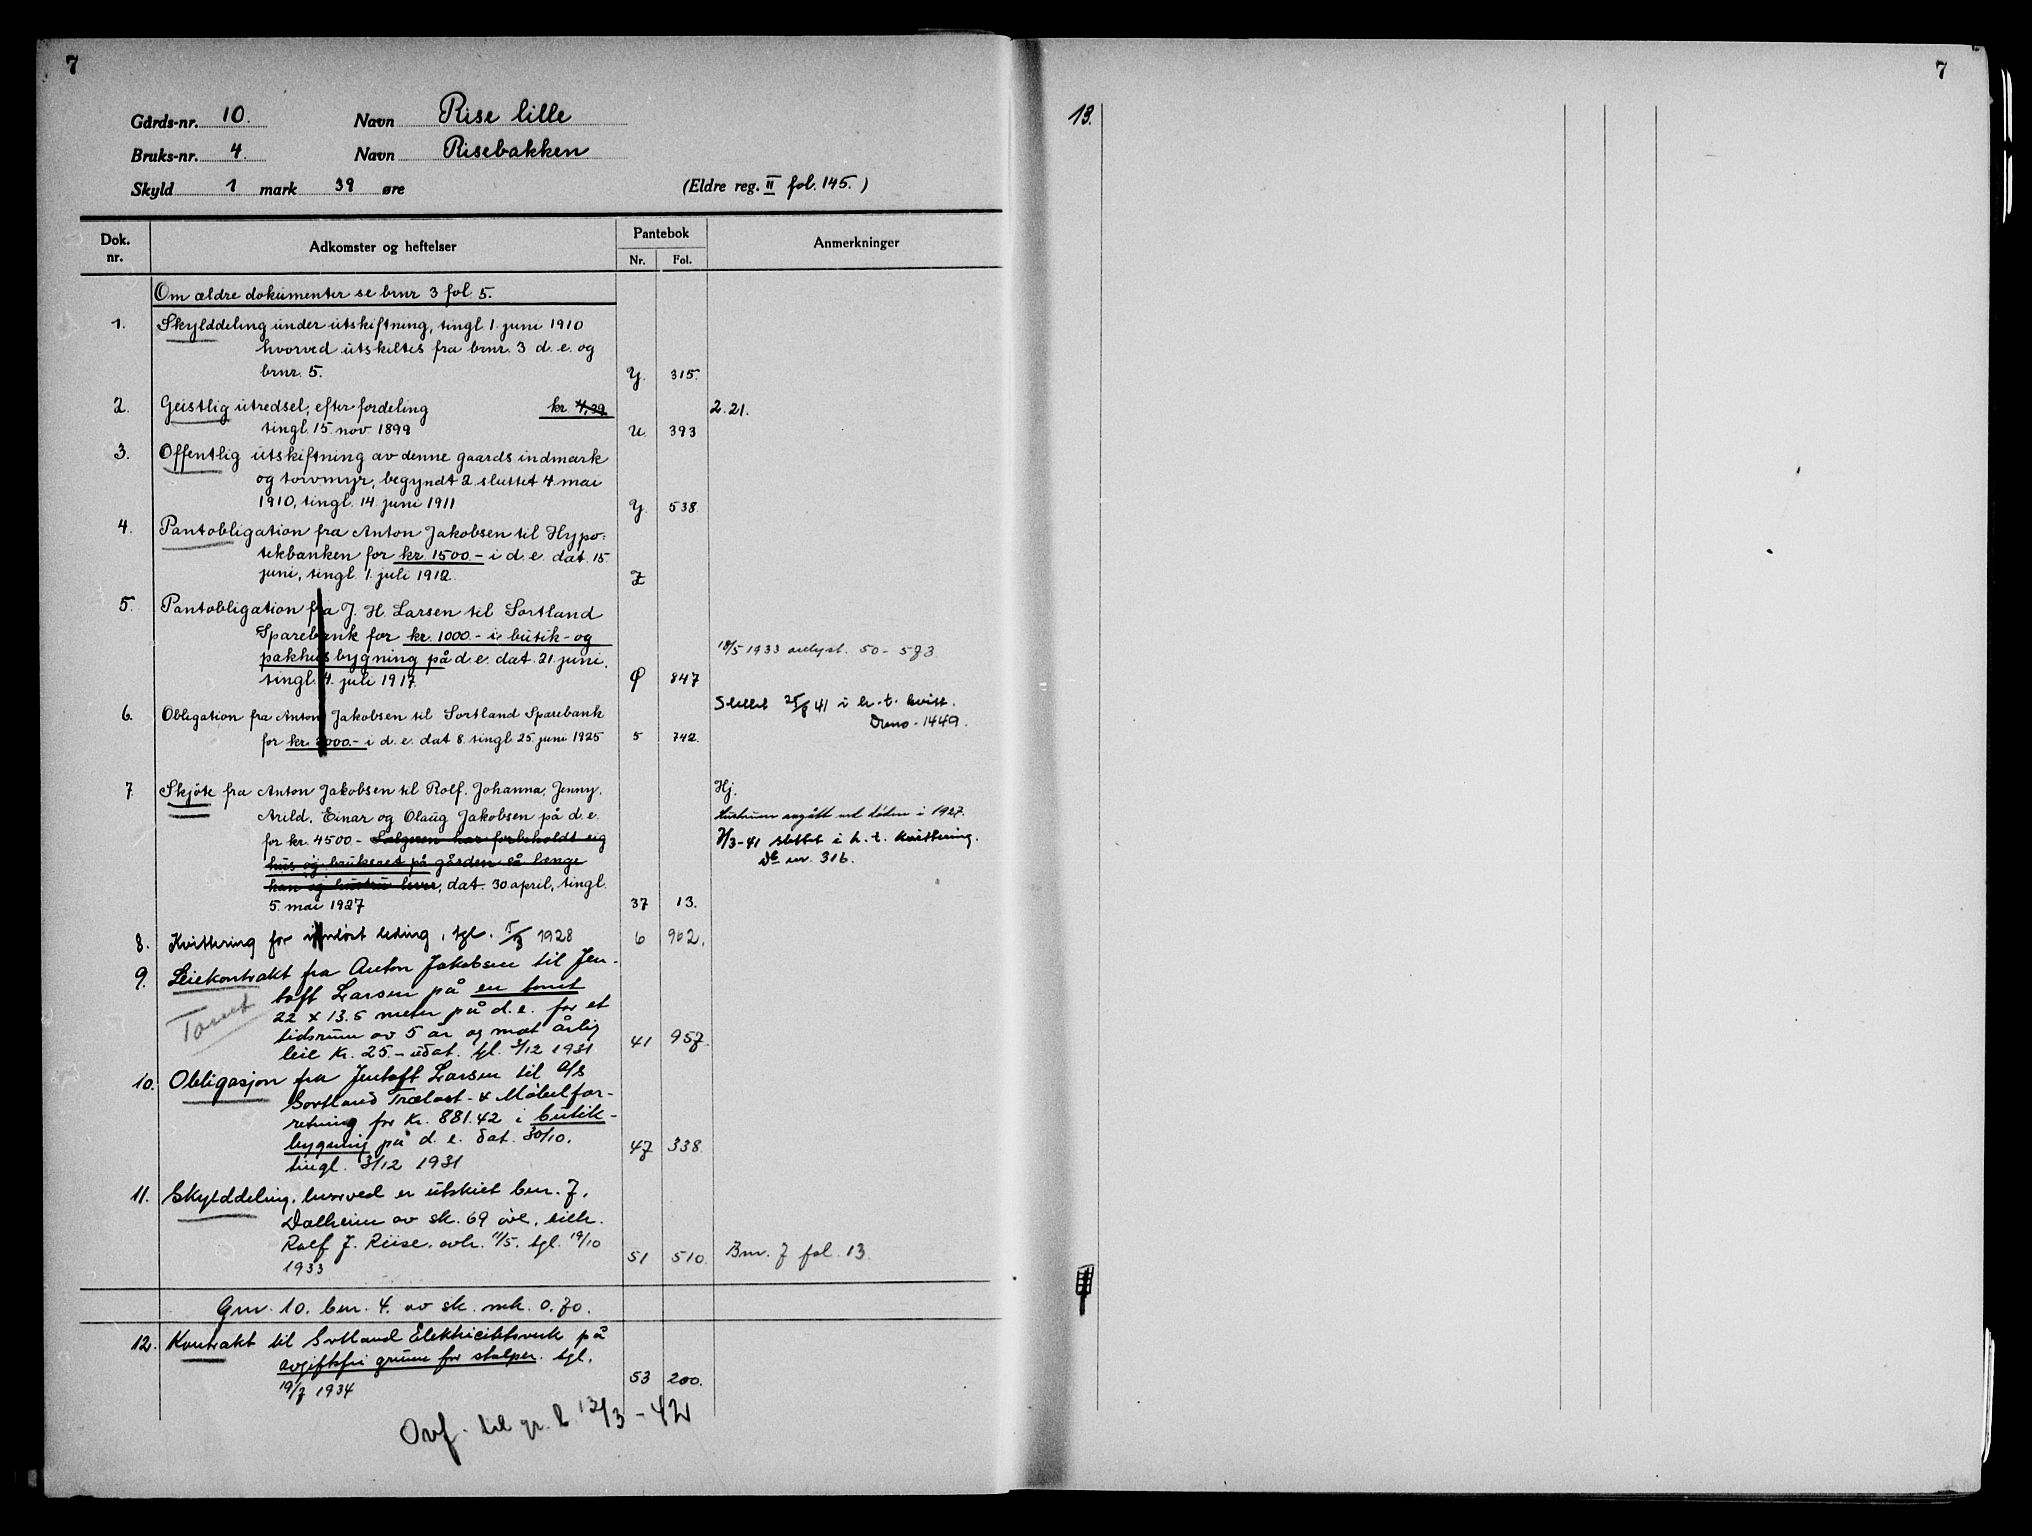 7
Gårds-nr. 10. Navn Rise lille
Bruks-nr. 4. Navn Risebakken
Skyld 1 mark 39 øre (Eldre reg. II fol. 145.)
Dok. nr. Adkomster og heftelser Pantebok Nr. Fol. Anmerkninger
Om ældre dokumenter se brnr 3 fol. 5.
1. Skylddeling under utskiftning, tingl. 1. juni 1910
hvorved utskiltes fra brnr. 3 d. e. og
brnr. 5. Y. 315.
2. Geistlig utredsel, efter fordeling kr. 4,39 2.21.
tingl. 15. nov 1899 U 393
3. Offentlig utskiftning av denne gaards indmark
og torvmyr, begyndt 2. sluttet 4. mai
1910, tingl. 14. juni 1911 Y 538
4. Pantobligation fra Anton Jakobsen til Hypo-
tekbanken for kr. 1500.- i d. e. dat. 15.
juni, tingl. 1. juli 1912. Z
5. Pantobligation fra J. H. Larsen til Sortland
Sparebank for kr. 1000.- i butik- og
pakhusbygning på d. e. dat. 21. juni, 18/5 1933 avlyst. 50 - 573
tingl. 4. juli 1917. Ø 847
6. Obligation fra Anton Jakobsen til Sortland Sparebank Slettet 25/8 41 i h. t. kvitt.
Dnro - 1449.
for kr. 2000.- i d. e. dat 8. tingl. 25. juni 1925 5 742.
7. Skjöte fra Anton Jakobsen til Rolf, Johanna, Jenny, Hj.
Arild, Einar og Olaug Jakobsen på d. e. Hustrum avgått ved døden i 1927.
for kr. 4500.- Sælgeren har forbeholdt sig 7/3-41 slettet i h. t. kvittering.
hus og bruksret på gården så længe De nr. 316.
han og hustru lever, dat. 30. april, tingl.
5. mai 1927 37 13.
8. Kvittering for innløst leding, tgl. 5/3 1928 6 962.
9. Leiekontrakt fra Anton Jakobsen til Jen-
toft Larsen på en tomt
Tomt
22 x 13.5 meter på d. e. for et
tidsrum av 5 år og mot årlig
leie kr. 25.- udat. tgl. 3/12 1931 41 957.
10. Obligasjon fra Jentoft Larsen til A/S
Sortland Trælast- & Møbelfor-
retning for kr. 881.42 i butik-
bygning på d. e. dat. 30/10. 47 338
tingl. 3/12 1931
11. Skylddeling, hvorved er utskiet bnr. 7.
Dalheim av sk. 69 øre, tilh.
Rolf J. Riise, avh. 11/5. tgl. 19/10 51 510. Bnr. 7 fol. 13.
1933
Gnr. 10. bnr. 4. av sk. mk. 0.70.
12. Kontrakt til Sortland Elektricitetsverk på
avgiftsfri grunn for stolper. tgl. 53 200.
19/7 1934
Ovf. til gr. b. 12/3 - 42
7
13.